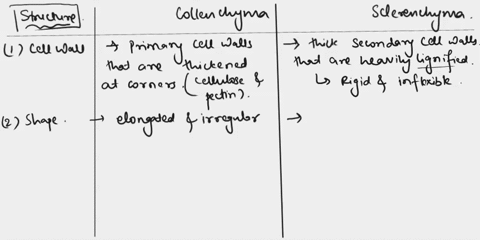 Structure. Collenchyma Sclerenchyma.
(1) Cell Wall → Primary Cell Walls → thick Secondary Cell Walls
that are thickened that are heavily lignified.
at corners. (cellulose & ↳ Rigid & inflexible.
pectin).
(2) Shape. → elongated & irregular →